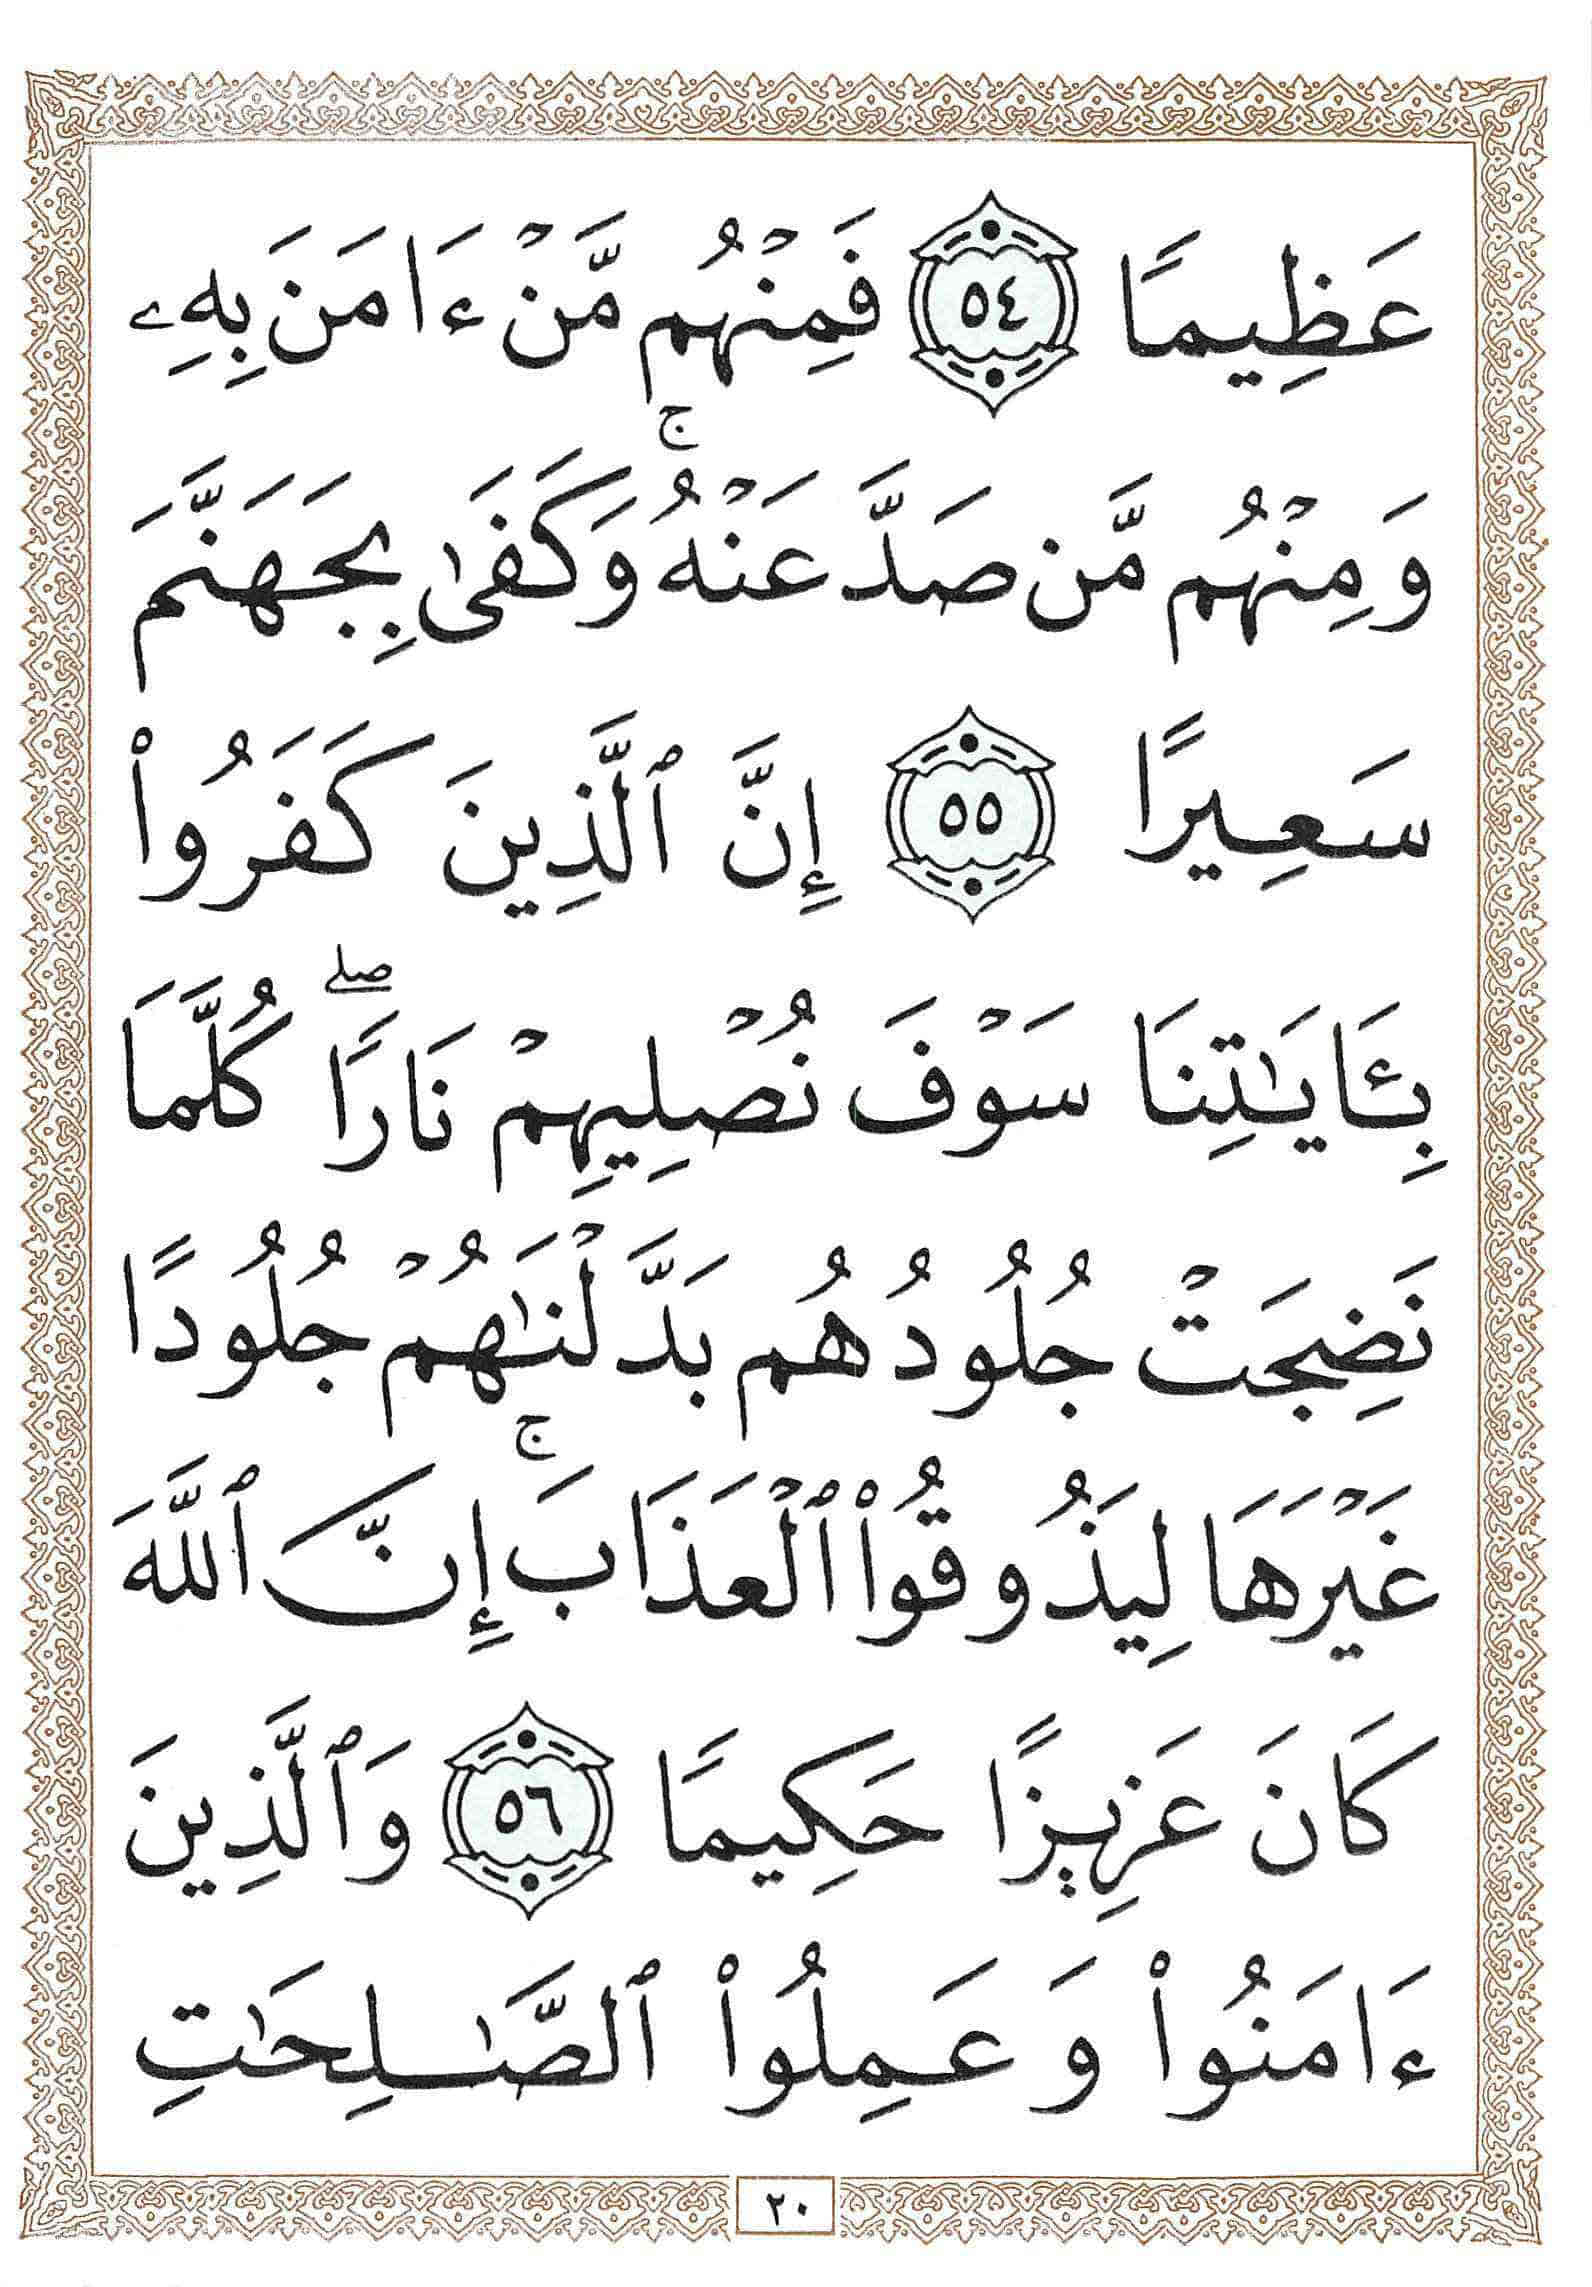 عَظِيمًا ٥٤ فَمِنْهُم مَّنْ ءَامَنَ بِهِۦ
وَمِنْهُم مَّن صَدَّ عَنْهُ ۚ وَكَفَىٰ بِجَهَنَّمَ
سَعِيرًا ٥٥ إِنَّ ٱلَّذِينَ كَفَرُوا۟
بِـَٔايَـٰتِنَا سَوْفَ نُصْلِيهِمْ نَارًا ۖ كُلَّمَا
نَضِجَتْ جُلُودُهُم بَدَّلْنَـٰهُمْ جُلُودًا
غَيْرَهَا لِيَذُوقُوا۟ ٱلْعَذَابَ ۚ إِنَّ ٱللَّهَ
كَانَ عَزِيزًا حَكِيمًا ٥٦ وَٱلَّذِينَ
ءَامَنُوا۟ وَعَمِلُوا۟ ٱلصَّـٰلِحَـٰتِ
٢٠